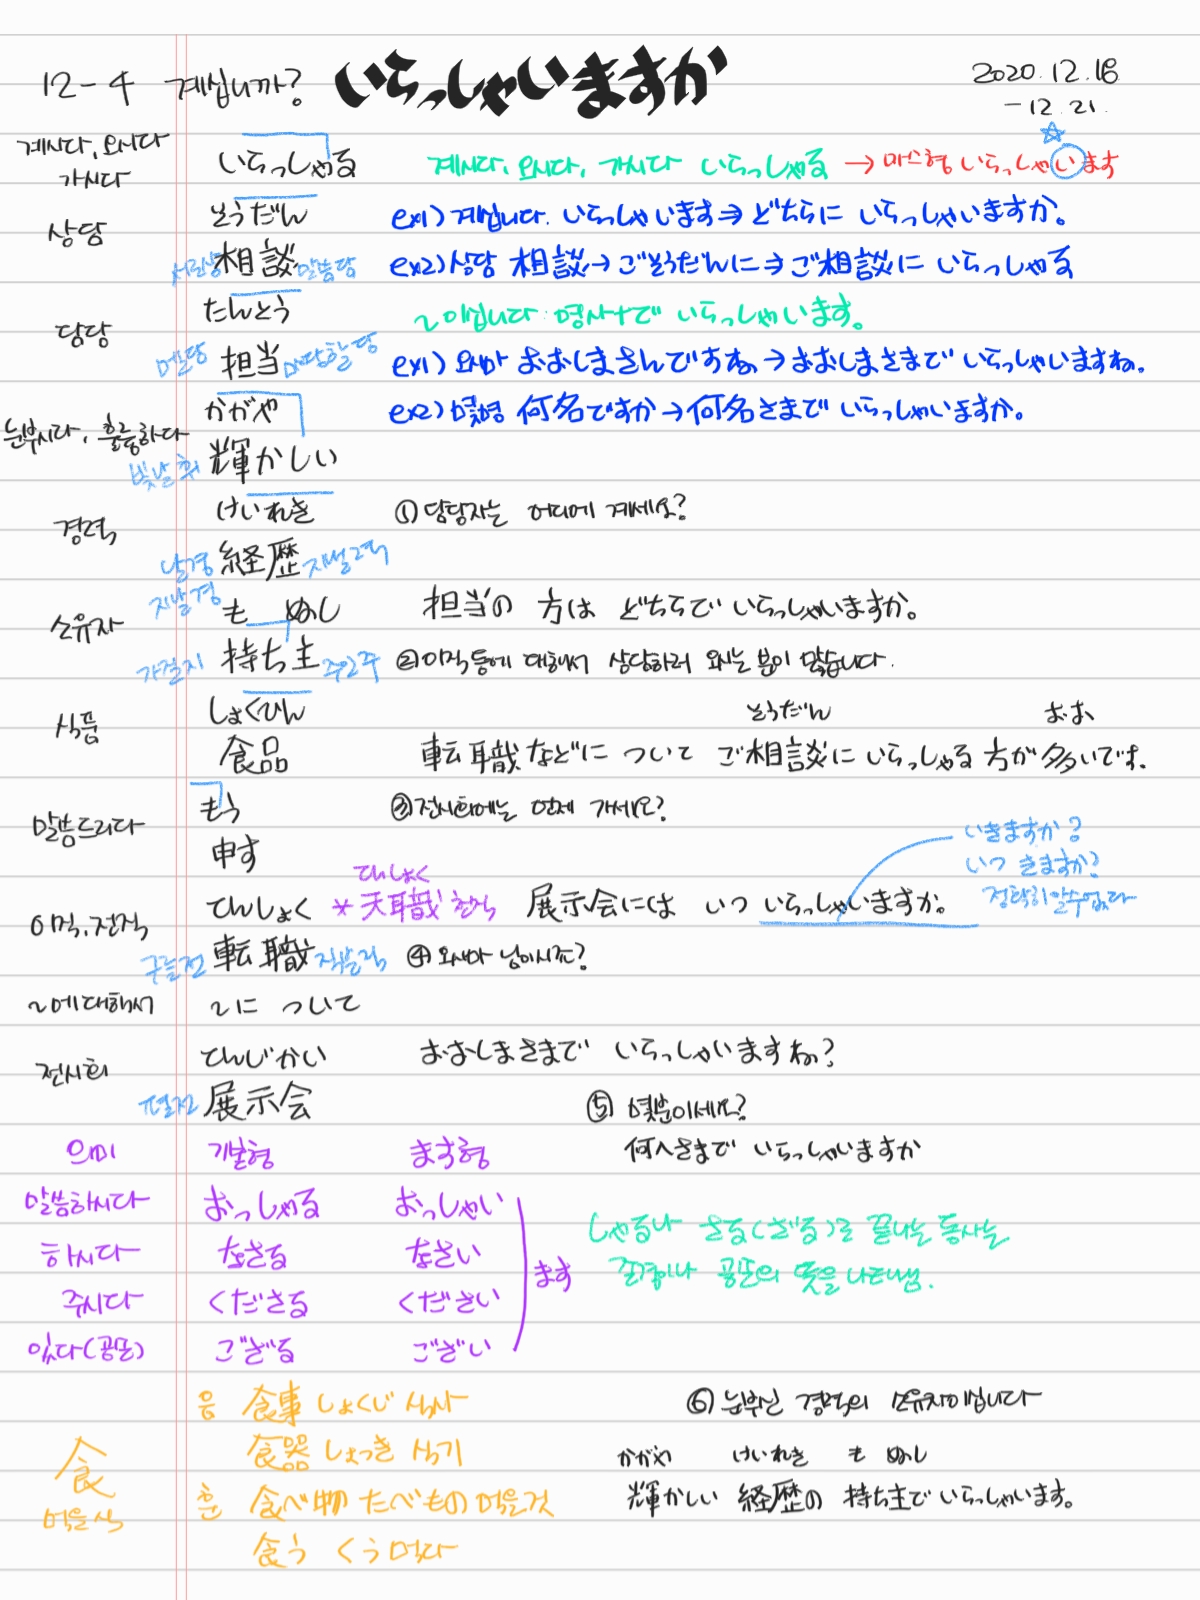 12-4 계십니까? いらっしゃいますか
2020.12.18
-12.21.
계시다, 오시다
가시다
いらっしゃる
계시다, 오시다, 가시다 いらっしゃる → 마스형 いらっしゃいます
상담
そうだん
서로상 相談 말씀담
ex1) 계십니다. いらっしゃいます⇒ どちらに いらっしゃいますか。
ex2) 상담 相談→ ごそうだんに⇒ ご相談に いらっしゃる
담당
たんとう
멜담 担当 마땅할 당
~이십니다 : 명사+で いらっしゃいます。
ex1) 오시마 おおしまさんですね→ おおしまさまで いらっしゃいますね。
눈부시다, 훌륭하다
かがや
빛날 휘 輝かしい
ex2) 몇명 何名ですか→何名さまで いらっしゃいますか。
경력
けいれき
날경 経歴 지낼력
지날경
① 담당자는 어디에 계세요?
担当の 方は どちらで いらっしゃいますか。
소유자
も ぬし
가질지 持ち主 주인주
② 이직 등에 대해서 상담하러 오시는 분이 많습니다.
そうだん おお
転職などに ついて ご相談に いらっしゃる 方が 多いです。
식품
しょくひん
食品
말씀드리다
もう
申す
③ 전시회에는 언제 가세요?
いきますか?
いつ きますか?
정확히 알수없다
展示会には いつ いらっしゃいますか。
이직, 전직
てんしょく
구를전 転職 직분직
てんしょく
* 天職 천직
④ 오시마 님이시죠?
おおしまさまで いらっしゃいますね?
~에 대해서
~に ついて
전시회
てんじかい
펼전 展示会
⑤ 몇분이세요?
何人さまで いらっしゃいますか
의미 기본형 ます형
말씀하시다 おっしゃる おっしゃい
하시다 なさる なさい
주시다 くださる ください
있다(공손) ござる ござい
ます
しゃる나 さる(ざる)로 끝나는 동사는
존경이나 공손의 뜻을 나타냄.
食
먹을식
음 食事 しょくじ 식사
食器 しょっき 식기
훈 食べ物 たべもの 먹을것
食う くう 먹다
⑥ 눈부신 경력의 소유자이십니다
かがや けいれき も ぬし
輝かしい 経歴の 持ち主で いらっしゃいます。